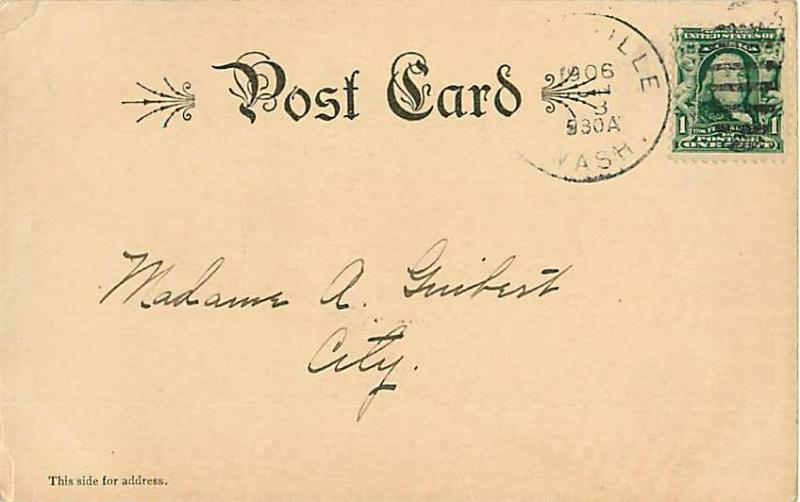 Post Card
1906
3
930A
WASH.
UNITED STATES OF
1 1
POSTAGE
ONE CENT
Madame A. Guibert
City.
This side for address.